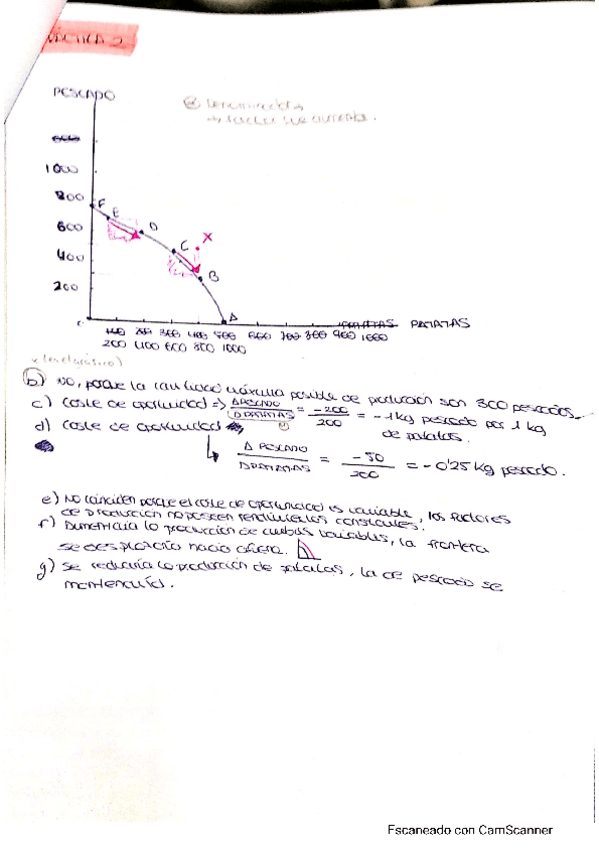 PRÁCTICA 2
PESCADO
@ Denominador
→ factor que aumenta.
1000
800
600
400
200
F
E
D
C
X
B
A
PATATAS PATATAS
100 200 300 400 500 600 700 800 900 1000
200 400 600 800 1000
b) NO, porque la cantidad máxima posible de producción son 300 pescados.
c) Coste de oportunidad => Δ PESCADO / Δ PATATAS = -200 / 200 = -1 kg pescado por 1 kg
de patatas.
d) Coste de oportunidad
↳ Δ PESCADO / Δ PATATAS = -50 / 200 = -0'25 kg pescado.
e) No coinciden porque el coste de oportunidad es variable, los factores
de producción no poseen rendimientos constantes.
f) Aumentaría la producción de ambas variables, la frontera
se desplazaría hacia afuera.
g) Se reduciría la producción de patatas, la de pescado se
mantendría.
Escaneado con CamScanner